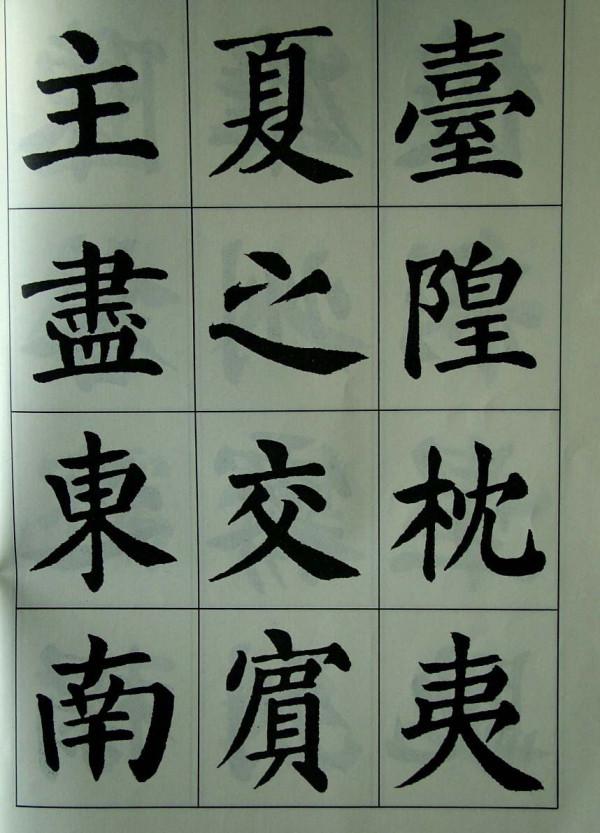 臺隍枕夷
夏之交賔
主盡東南